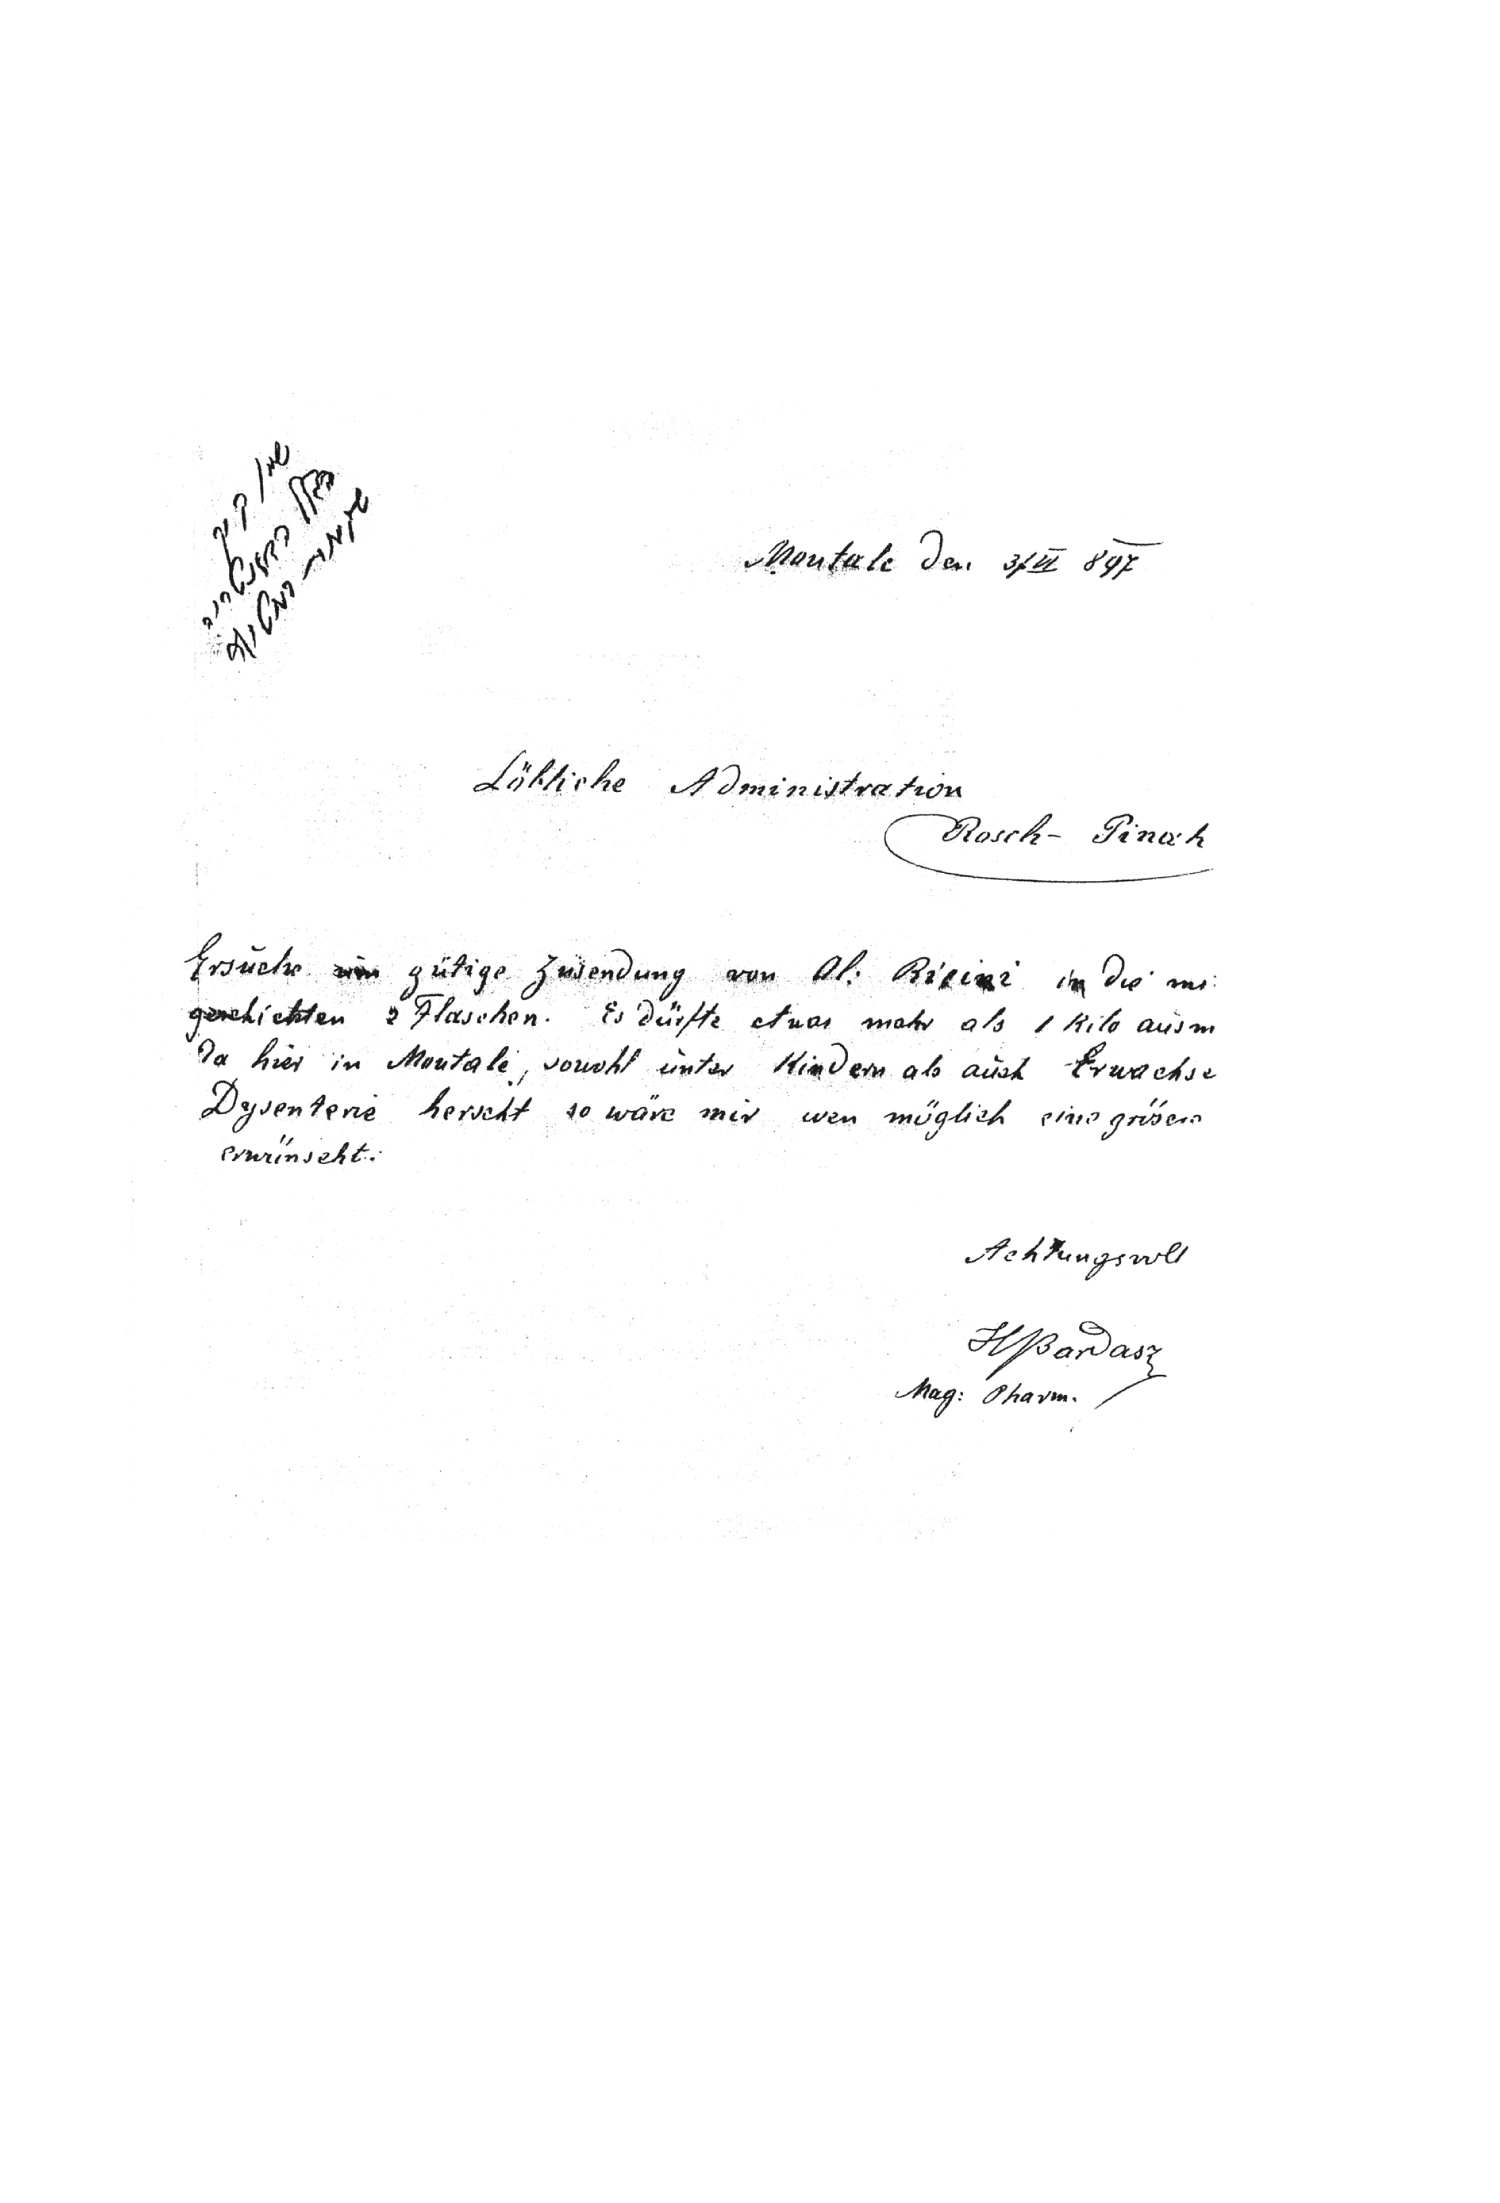 שמן קיק
Montale den 3/VI 897
Löbliche Administration
Rosch- Pinah
Ersuche um gütige Zusendung von Ol: Ricini in die mi
geschickten 2 Flaschen. Es dürfte etwas mehr als 1 Kilo ausm
Da hier in Montale, sowohl unter Kindern als auch Erwachse
Dysenterie herscht so wäre mir wen möglich eine grösere
erwünscht.
Achtungsvoll
H Bardasz
Mag: Pharm.